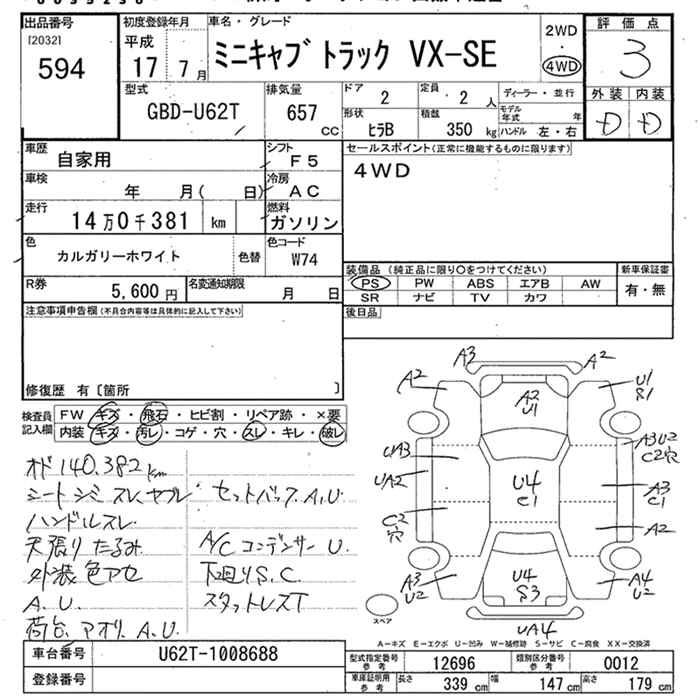 出品番号
[2032]
594
初度登録年月
平成
17 7月
車名・グレード
ミニキャブ トラック VX-SE
2WD
・
4WD
評価点
3
外装 内装
D D
型式
GBD-U62T
排気量
657 CC
ドア
2
定員
2 人
ディーラー・並行
モデル年式 年
形状
ヒラB
積載
350 kg
ハンドル 左・右
車歴
自家用
シフト
F5
セールスポイント(正常に機能するものに限ります)
4WD
車検
年 月( 日)
冷房
AC
走行
14万0千381 km
燃料
ガソリン
色
カルガリーホワイト
色替
色コード
W74
R券
5,600円
名変通知期限
月 日
装備品 (純正品に限り○をつけてください)
新車保証書
PS PW ABS エアB AW
有・無
SR ナビ TV カワ
後日品
注意事項申告欄(不具合内容等は具体的に記入して下さい)
修復歴 有〔箇所 〕
検査員記入欄
FW キズ・飛石・ヒビ割・リペア跡・×要
内装 キズ・汚レ・コゲ・穴・スレ・キレ・破レ
オド 140.382km
シート シミ スレ ヤブレ
セットバック A.U.
ハンドルスレ
天張り たるみ
A/C コンデンサー U.
外装 色アセ
下回り S.C.
A.U.
スタットレスT
荷台 アオリ A.U.
A3 A2
A2
A2 U1
U1 S1
UA3
UA2
U4 C1
A3U2 C2穴
A3 C1
C2 穴
A2
A3 U2
U4 S3
A4 U2
UA4
スペア
A-キズ E-エクボ U-凹み W-補修跡 S-サビ C-腐食 XX-交換済
車台番号
U62T-1008688
登録番号
型式指定番号 参考
12696
類別区分番号 参考
0012
車庫証明用 参考
長さ 339 cm
幅 147 cm
高さ 179 cm